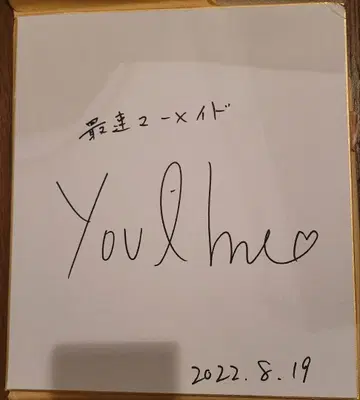 最速マーメイド
You l me♡
2022.8.19